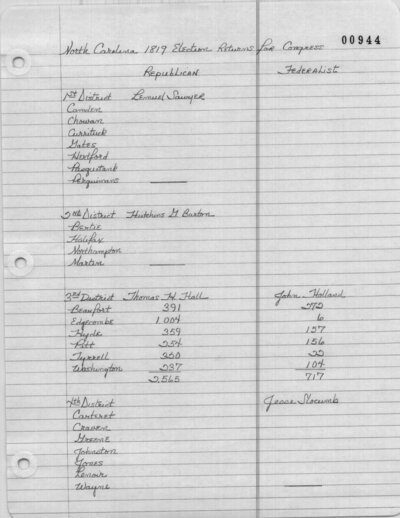 00944
North Carolina 1819 Election Returns for Congress
Republican Federalist
1st District Lemuel Sawyer
Camden
Chowan
Currituck
Gates
Hertford
Pasquotank
Perquimans
2nd District Hutchins G Burton
Bertie
Halifax
Northampton
Martin
3rd District Thomas H. Hall John Holland
Beaufort 391 272
Edgecombe 1004 6
Hyde 359 157
Pitt 234 156
Tyrrell 350 22
Washington 237 104
2,565 717
4th District Jesse Slocumb
Carteret
Craven
Greene
Johnston
Jones
Lenoir
Wayne